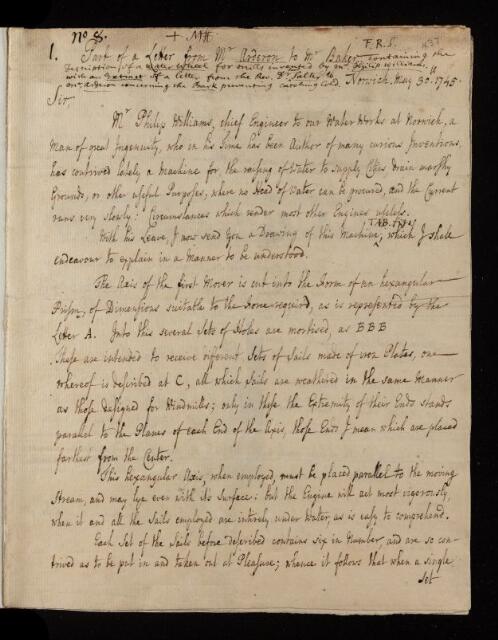 No 8. + MH
1. Part of a Letter from Mr Arderon to Mr Baker F.R.S. containing the
Description of a Water Wheel for Mills invented by Mr Philip Williams.
with an Extract of a letter from the Revd. Dr
Mr Arderon concerning the Bark preventing catching cold. Norwich May 30th 1745.
Sir,
Mr Philip Williams, chief Engineer to our Water Works at Norwich, a
Man of great Ingenuity, who in his time has been Author of many curious Inventions,
has contrived lately a Machine for the raising of Water to supply Cities, drain marshy
Grounds, or other useful Purposes, where no Head of Water can be procured, and the Current
runs very slowly: Circumstances which render most other Engines useless.
With his Leave, I now send you a Drawing of this Machine, TAB. which I shall
endeavour to explain in a Manner to be understood.
The Axis of the first Mover is cut into the Form of an hexangular
Prism, of Dimensions suitable to the Force required, as is represented by the
Letter A. Into this several Sets of Holes are mortised, as BBB
These are intended to receive different Sets of Sails made of iron Plates, one
whereof is described at C, all which Sails are weathered in the same Manner
as those designed for Windmills; only in these the Extremity of their Ends stands
parallel to the Planes of each End of the Axis, those Ends I mean which are placed
farthest from the Center.
This hexangular Axis, when employed, must be placed parallel to the moving
Stream, and may lye even with its Surface: but the Engine will act most vigorously,
when it and all the Sails employed are intirely under Water, as is easy to comprehend.
Each Set of the Sails before described contains six in Number, and are so con-
trived as to be put in and taken out at Pleasure; whence it follows that when a single
Set